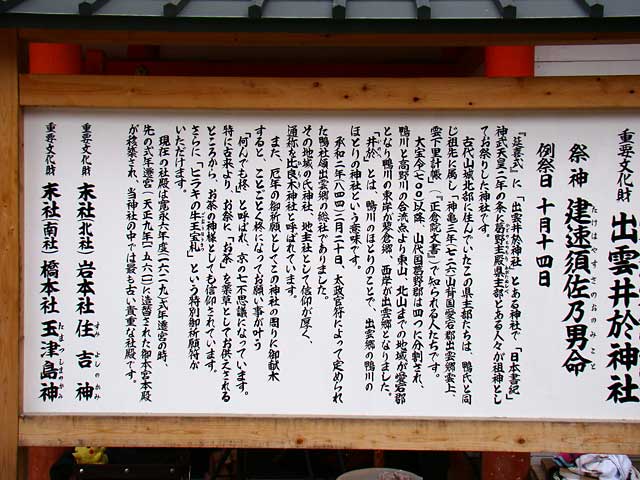 重要文化財
出雲井於神社
祭神 建速須佐乃男命
たけはやすさのおのみこと
例祭日 十月十四日
『延喜式』に「出雲井於神社」とある神社で『日本書紀』
神武天皇二年の条に葛野主殿県主部とある人々が祖神とし
てお祭りした神社です。
古代山城北部に住んでいたこの県主部たちは、鴨氏と同
じ祖先に属し、「神亀三年(七二六)山背国愛宕郡出雲郷雲上、
雲下里計帳」(『正倉院文書』)で知られる人たちです。
大宝令(七〇〇)以降、山代国葛野郡は四つに分割され、
鴨川と高野川の合流点より東山、北山までの地域が愛宕郡
となり鴨川の東岸が蓼倉郷、西岸が出雲郷となりました。
「井於」とは、鴨川のほとりのことで、出雲郷の鴨川の
ほとりの神社という意味です。
承和二年(八四四)二月二十日、太政官符によって定められ
た鴨社領出雲郷の総社でありました。
その地域の氏神社、地主社として信仰が厚く、
通称を比良木神社と呼ばれています。
また、厄年の御祈願としてこの神社の周りに御献木
すると、ことごとく柊になってお願い事が叶う
「何んでも柊」と呼ばれ、京の七不思議になっています。
特に古来より、お祭に「お茶」を薬草としてお供えされる
ところから、お茶の神様としても信仰されています。
さらに「ヒラキの牛王宝札」という特別御祈願符が
いただけます。
現在の社殿は寛永六年度(一六二九)式年遷宮の時、
先の式年遷宮(天正九年(一五八一)に造替された御本宮本殿
が移築され、当神社の中では最も古い貴重な社殿です。
重要文化財 末社(北社) 岩本社 住吉神
すみよしのかみ
重要文化財 末社(南社) 橋本社 玉津島神
たまつしまのかみ